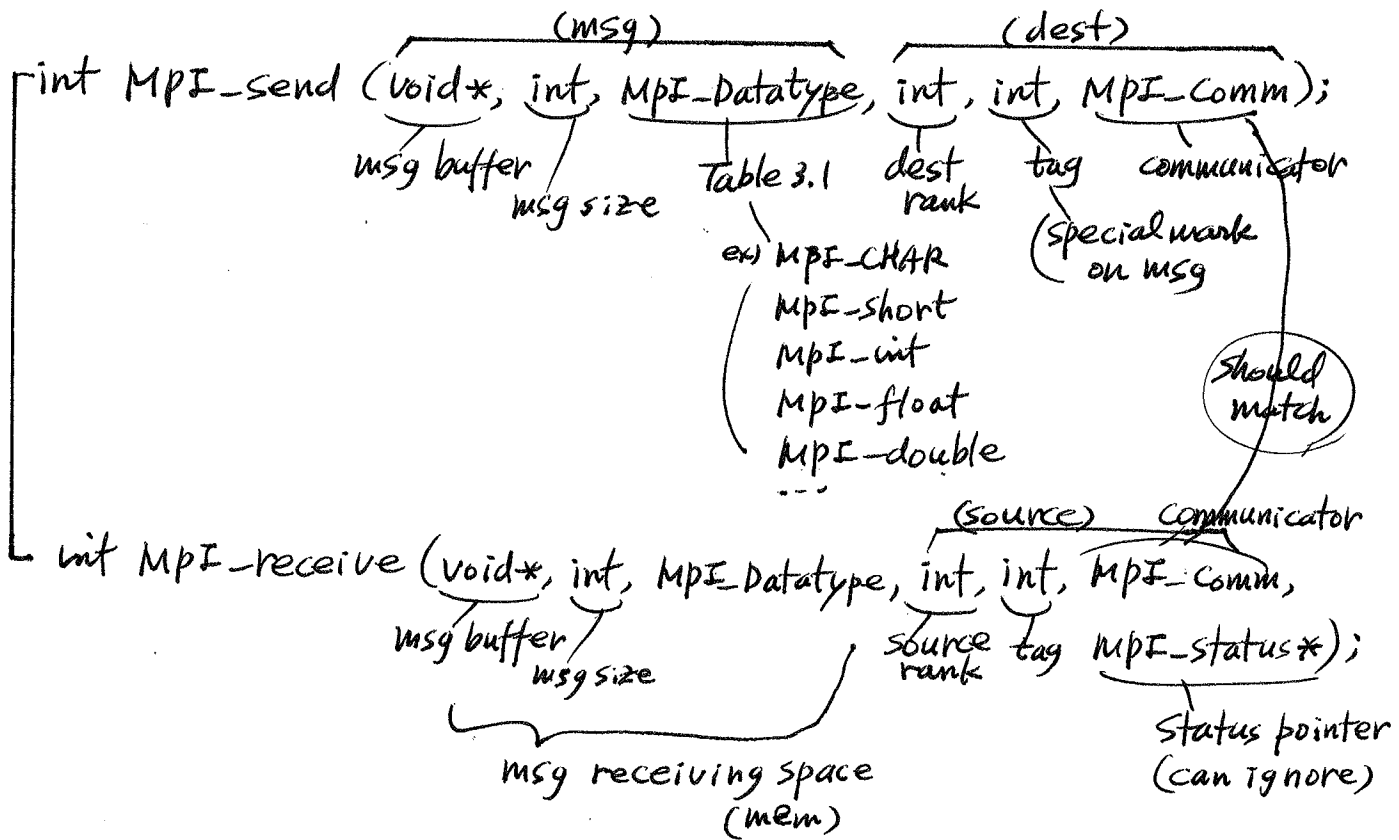 (msg) (dest)
int MPI_send (void*, int, MPI_Datatype, int, int, MPI_Comm);
msg buffer msg size Table 3.1 dest rank tag communicator
(special mark
on msg
ex) MPI_CHAR
MPI_short
MPI_int
MPI_float
MPI_double
...
should
match
(source) communicator
int MPI_receive (void*, int, MPI_Datatype, int, int, MPI_Comm,
msg buffer msg size source rank tag MPI_status*);
status pointer
(can ignore)
msg receiving space
(mem)